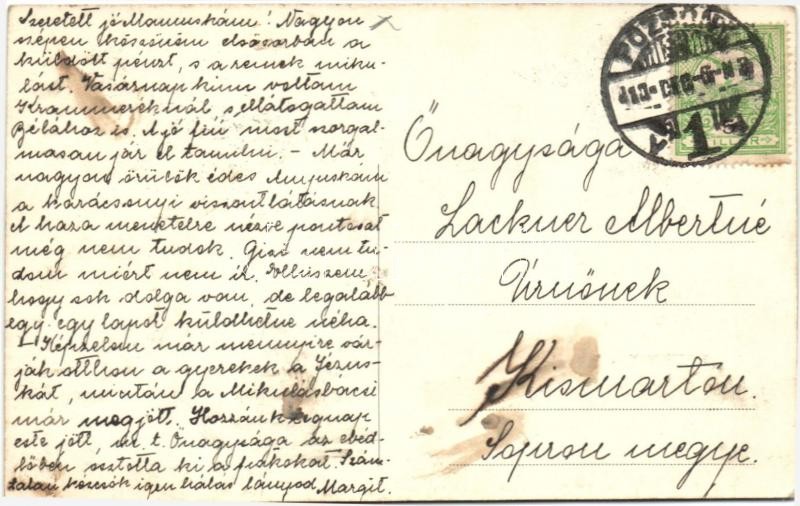 Szeretett jó Mamuskám! Nagyon
szépen köszönöm elsősorban a
küldött pénzt, s a remek miku-
lást. Vasárnap kinn voltam
Krammeréknál s ellátogattam
Bélához is. A jó fiú most szorgal-
masan jár el tanulni. – Már
nagyon örülök édes Anyuskám
a karácsonyi viszontlátásnak.
A haza menetelre nézve pontosat
még nem tudok. Gizi nem tu-
dom miért nem ír. Elhiszem
hogy sok dolga van, de legalább
egy-egy lapot küldhetne néha.
– Képzelem már mennyire vár-
ják otthon a gyerekek a Jézus-
kát, miután a Mikulásbácsi
már megjött. Hozzánk tegnap
este jött, m. t. Őnagysága az ebéd-
lőben osztotta ki a fiákokat. Szám-
talan kézcsók igen hálás lányod Margit.
POZSONY
913 DEC
1
FILLÉR
Őnagysága
Lackner Albertné
Úrnőnek
Kismarton.
Sopron megye.